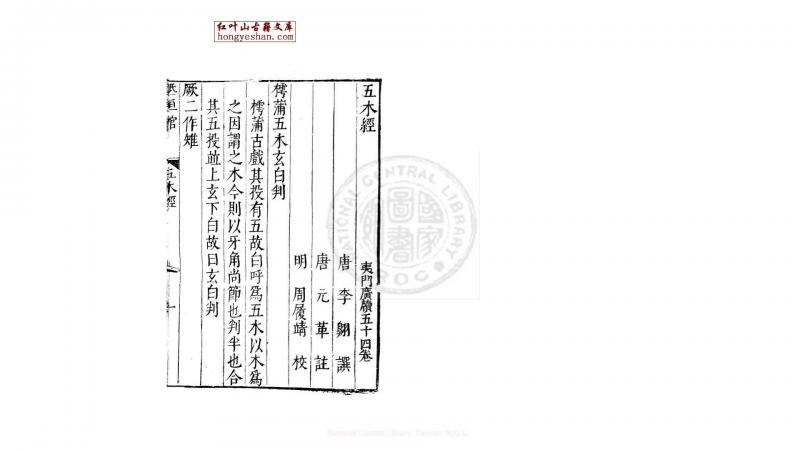 红叶山古籍文库
hongyeshan.com
五木經
夷門廣牘五十四卷
唐 李 翱 譔
唐 元 革 註
明 周履靖 校
樗蒲五木玄白判
樗蒲古戲其投有五故白呼爲五木以木爲
之因謂之木今則以牙角尚節也判半也合
其五投並上玄下白故曰玄白判
厥二作雉
五木經
NATIONAL CENTRAL LIBRARY
R.O.C.
國家圖書館
National Central Library, Taiwan, R.O.C.